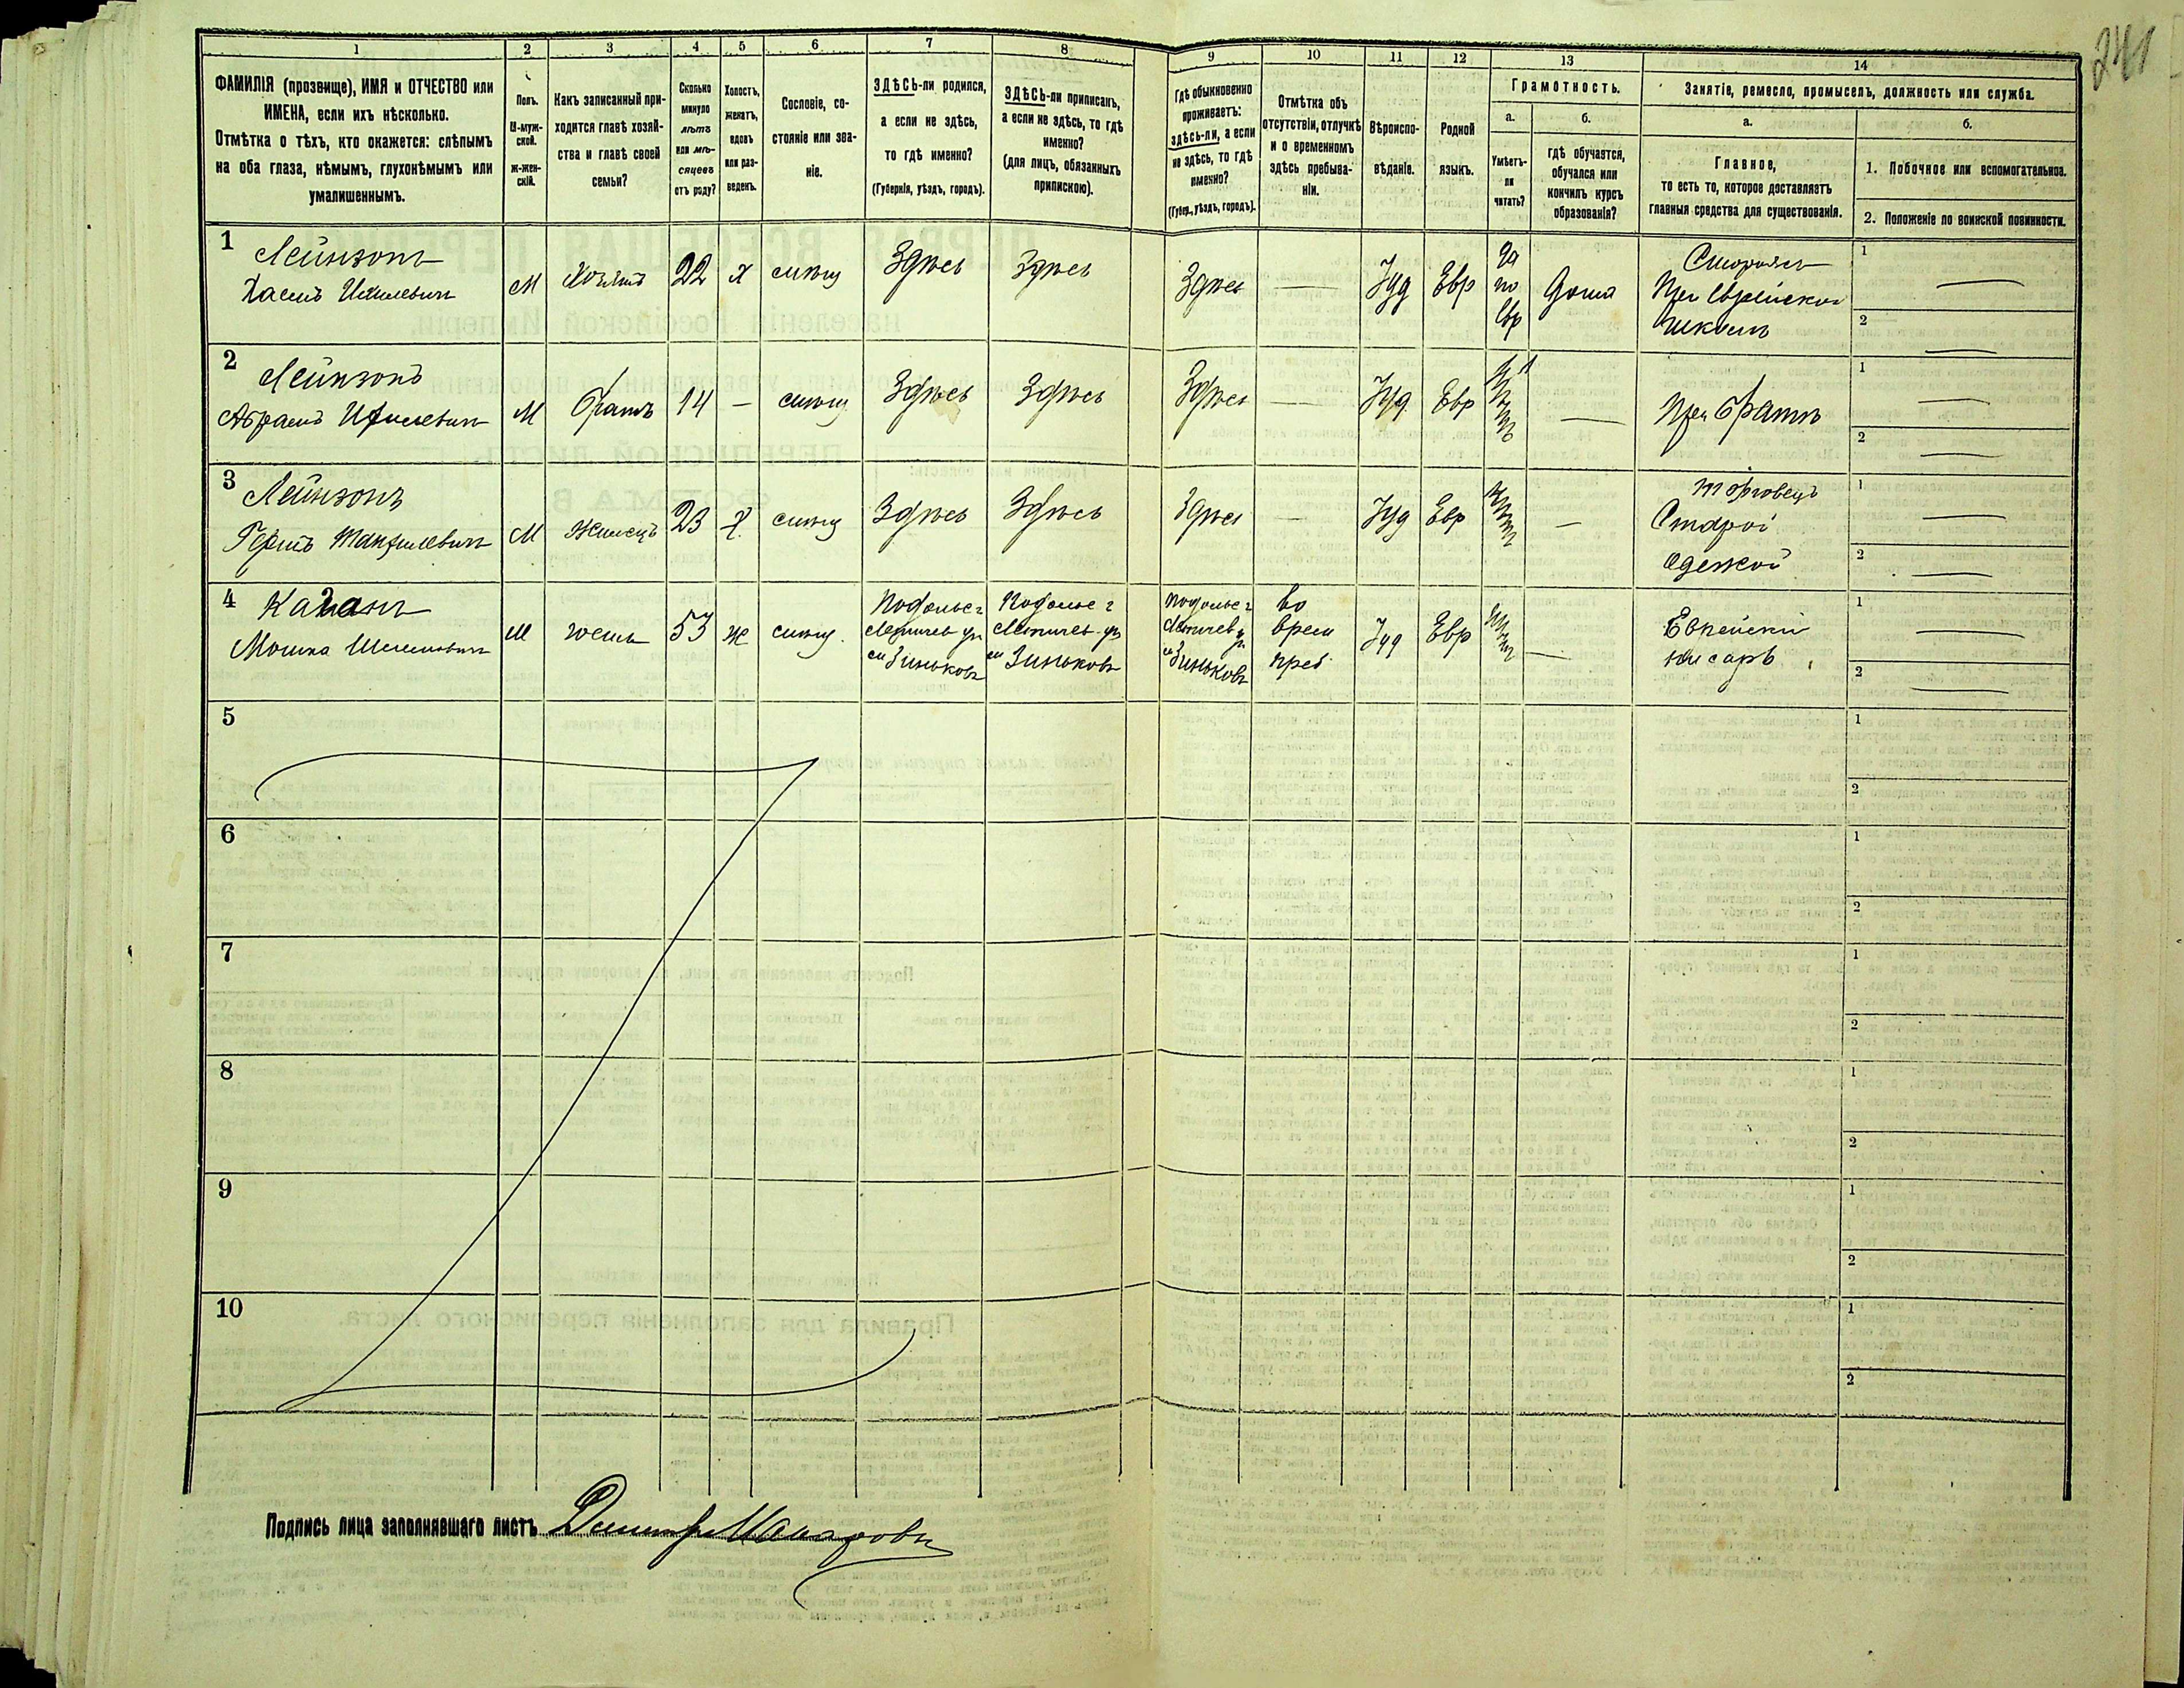 241
1 2 3 4 5 6 7 8 9 10 11 12 13 14
ФАМИЛІЯ (прозвище), ИМЯ и ОТЧЕСТВО или
ИМЕНА, если ихъ нѣсколько.
Отмѣтка о тѣхъ, кто окажется: слѣпымъ
на оба глаза, нѣмымъ, глухонѣмымъ или
умалишеннымъ.
Полъ.
М-муж-
ской.
Ж-жен-
скій.
Какъ записанный при-
ходится главѣ хозяй-
ства и главѣ своей
семьи?
Сколько
минуло
лѣтъ
или мѣ-
сяцевъ
отъ роду?
Холостъ,
женатъ,
вдовъ
или раз-
веденъ.
Сословіе, со-
стояніе или зва-
ніе.
ЗДѢСЬ-ли родился,
а если не здѣсь,
то гдѣ именно?
(Губернія, уѣздъ, городъ).
ЗДѢСЬ-ли приписанъ,
а если не здѣсь, то гдѣ
именно?
(для лицъ, обязанныхъ
припискою).
Гдѣ обыкновенно
проживаетъ:
здѣсь-ли, а если
не здѣсь, то гдѣ
именно?
(Губер., уѣздъ, городъ).
Отмѣтка объ
отсутствіи, отлучкѣ
и о временномъ
здѣсь пребыва-
ніи.
Вѣроиспо-
вѣданіе.
Родной
языкъ.
Грамотность.
а.
Умѣетъ-
ли
читать?
б.
гдѣ обучается,
обучался или
кончилъ курсъ
образованія?
Занятіе, ремесло, промыселъ, должность или служба.
а.
Главное,
то есть то, которое доставляетъ
главныя средства для существованія.
б.
1. Побочное или вспомогательное.
2. Положеніе по воинской повинности.
1 Лейнзонъ
Хаимъ Ихилевичъ
М
Хозяинъ
22
х
Здѣсь
Здѣсь
Здѣсь
Іуд
Евр
да
по
Евр
дома
Сторожъ
При Еврейской
школѣ
1
2
2 Лейнзонъ
Абрамъ Ихилевичъ
М
братъ
14
—
Здѣсь
Здѣсь
Здѣсь
Іуд
Евр
При братѣ
1
2
3 Лейнзонъ
М
Жилецъ
23
х
Здѣсь
Здѣсь
Здѣсь
Іуд
Евр
нѣтъ
торговецъ
Старой
Одежой
1
2
4 Каганъ
Мошка
М
53
ж
Подольс г
Летичев у
м Зиньковъ
Подольс г
Летичев у
м Зиньковъ
Подольс г
Летичев у
м Зиньковъ
во
врем
преб
Іуд
Евр
нѣтъ
Еврейскій
писарь
1
2
5
1
2
6
1
2
7
1
2
8
1
2
9
1
2
10
1
2
Подпись лица заполнявшаго листъ